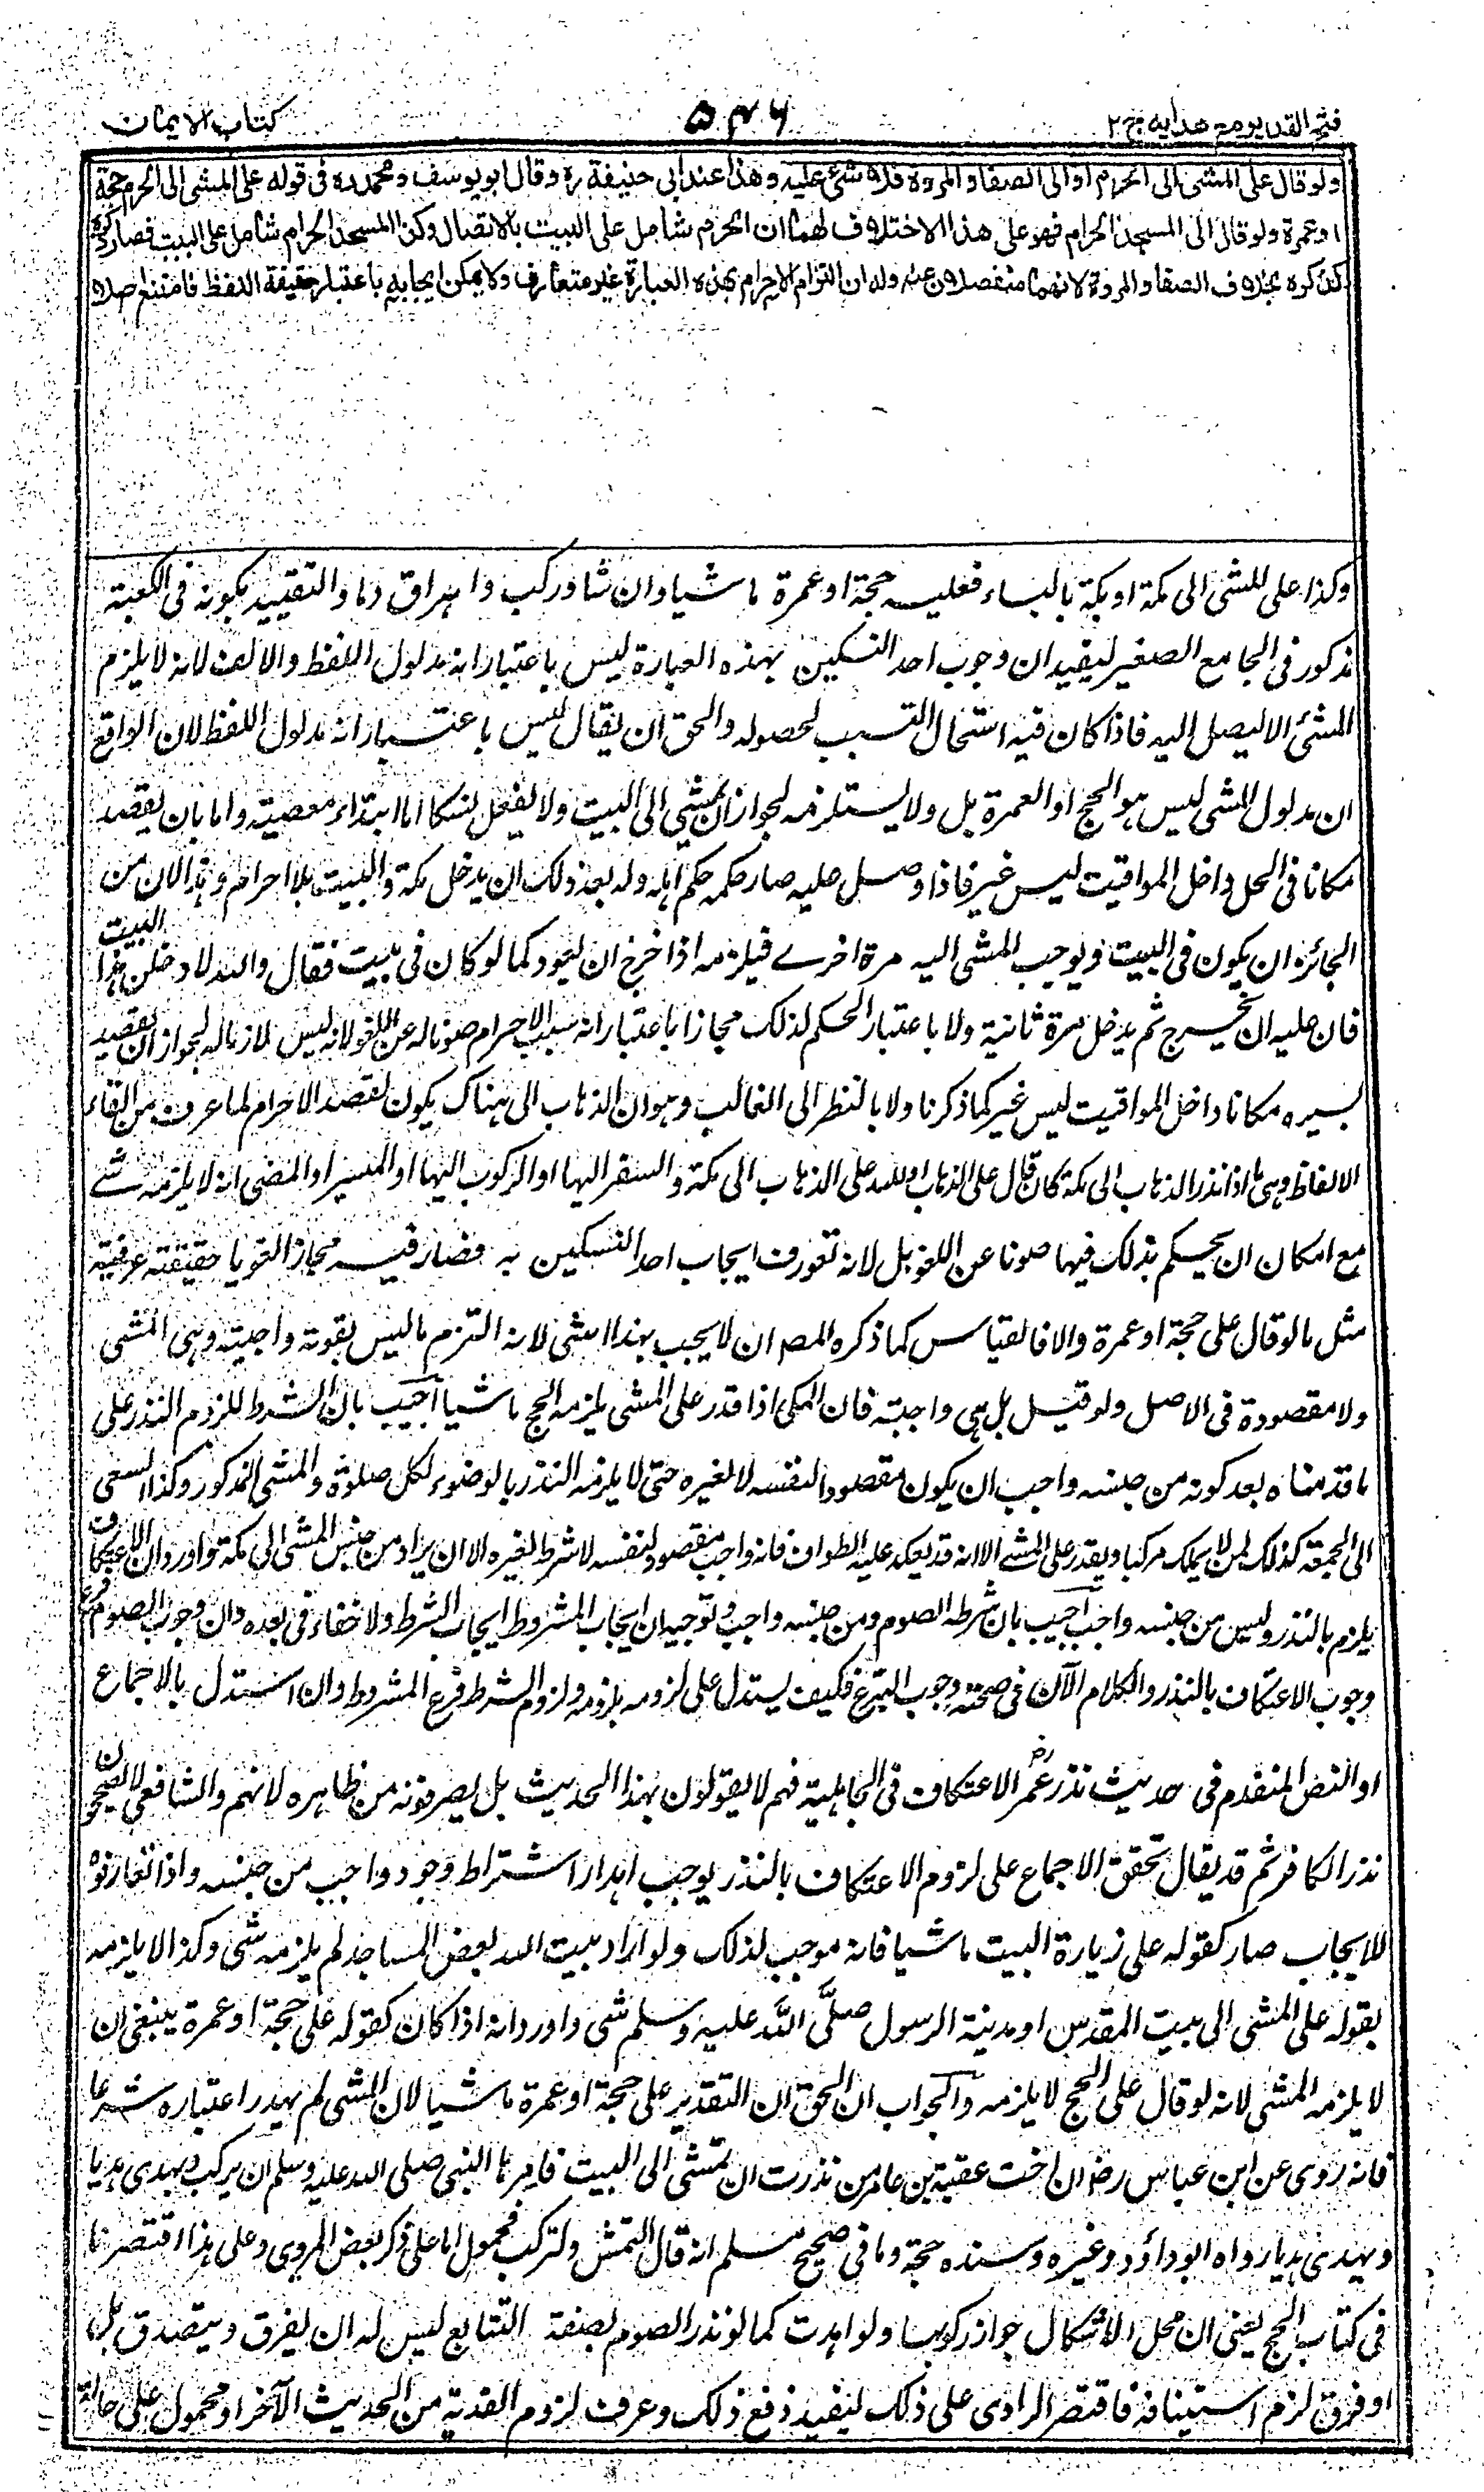 فتح القدير مع هدايه ج ٢
٥٤٦
كتاب الايمان
ولو قال على المشى الى الحرم او الى الصفا والمروة فلا شئ عليه وهذا عند ابى حنيفة ره وقال ابو يوسف ومحمد ره فى قوله على المشى الى الحرم حجة
او عمرة ولو قال الى المسجد الحرام فهو على هذا الاختلاف لهما ان الحرم شامل على البيت بالاتصال وكذا المسجد الحرام شامل على البيت فصار ذكره
كذكره بخلاف الصفا والمروة لانهما منفصلان عنه وله ان التزام الاحرام بهذه العبارة غير متعارف ولا يمكن ايجابه باعتبار حقيقة اللفظ فامتنع اصلا
وكذا على المشى الى مكة او بكة بالباء فعليه حجة او عمرة ماشيا وان شاء ركب واهراق دما والتقييد بكونه فى الكعبة
مذكور فى الجامع الصغير ليفيد ان وجوب احد النسكين بهذه العبارة ليس باعتبار انه مدلول اللفظ والا لغت لانه لا يلزم
المشئ الا ليصل اليه فاذا كان فيه استحال التسبب لحصوله والحق ان يقال ليس باعتبار انه مدلول اللفظ لان الواقع
ان مدلول المشى ليس هو الحج او العمرة بل ولا يستلزمه لجواز ان يمشى الى البيت ولا يفعل نسكا اما ابتداء معصية واما بان يقصد
مكانا فى الحل داخل المواقيت ليس غير فاذا وصل عليه صار حكمه حكم اهله وله بعد ذلك ان يدخل مكة والبيت بلا احرام وهذا لان من
الجائز ان يكون فى البيت ويوجب المشى اليه مرة اخرے فيلزمه اذا خرج ان يعود كما لو كان فى بيت فقال والله لادخلن هذا البيت
فان عليه ان يخرج ثم يدخل مرة ثانية ولا باعتبار الحكم لذلك مجازا باعتبار انه سبب الاحرام صونا له عن اللغو لانه ليس لازما له لجواز ان يقصد
بسيره مكانا داخل المواقيت ليس غير كما ذكرنا ولا بالنظر الى الغالب وهو ان الذهاب الى هناك يكون لقصد الاحرام لما عرف من الغاء
الالفاظ وهى ما اذا نذر الذهاب الى مكة كان قال على الذهاب او لله على الذهاب الى مكة والسفر اليها او الركوب اليها او المسير او المضى انه لا يلزمه شے
مع امكان ان يحكم بذلك فيها صونا عن اللغو بل لانه تعورف ايجاب احد النسكين به فصار فيه مجازا لغويا حقيقته عرفية
مثل ما لو قال على حجة او عمرة والا فالقياس كما ذكره المصـ ان لا يجب بهذا شئ لانه التزم ما ليس بقربة واجبة وهى المشى
ولا مقصودة فى الاصل ولو قيل بل هى واجبة فان المكى اذا قدر على المشى يلزمه الحج ماشيا اجيب بان الشرط للزوم النذر على
ما قدمناه بعد كونه من جنسه واجب ان يكون مقصودا لنفسه لا لغيره حتى لا يلزمه النذر بالوضوء لكل صلوة والمشى المذكور وكذا السعى
الى الجمعة كذلك لمن لا يملك مركبا ويقدر على المشے الا انه قد يعكر عليه الطواف فانه واجب مقصود لنفسه لا شرط لغيره الا ان يراد من جنس المشى الى مكة واورد ان الاعتكاف
يلزم بالنذر وليس من جنسه واجب اجيب بان شرطه الصوم ومن جنسه واجب وتوجيه ان ايجاب المشروط ايجاب الشرط ولا خفاء فى بعده وان وجوب الصوم فرع
وجوب الاعتكاف بالنذر والكلام الآن فى صحة وجوب المتبرع فكيف يستدل على لزومه بلزومه ولزوم الشرط فرع المشروط وان استدل بالاجماع
او النص المتقدم فى حديث نذر عمر رض الاعتكاف فى الجاهلية فهم لا يقولون بهذا الحديث بل يصرفونه من ظاهره لانهم والشافعى لا يصححون
نذر الكافر ثم قد يقال تحقق الاجماع على لزوم الاعتكاف بالنذر يوجب اهدار اشتراط وجود واجب من جنسه واذا تعارفوه
للايجاب صار كقوله على زيارة البيت ماشيا فانه موجب لذلك ولو اراد ببيت الله بعض المساجد لم يلزمه شئ وكذا لا يلزمه
بقوله على المشى الى بيت المقدس او مدينة الرسول صلى الله عليه وسلم شئ واورد انه اذا كان كقوله على حجة او عمرة ينبغى ان
لا يلزمه المشى لانه لو قال على الحج لا يلزمه والجواب ان الحق ان التقدير على حجة او عمرة ماشيا لان المشى لم يهدر اعتباره شرعا
فانه روى عن ابن عباس رض ان اخت عقبة بن عامر نذرت ان تمشى الى البيت فامرها النبى صلى الله عليه وسلم ان تركب وتهدى هديا
وتهدى هديا رواه ابو داؤد وغيره وسنده حجة وما فى صحيح مسلم انه قال لتمش ولتركب فمحمول اما على ذكر بعض المروى وعلى هذا اقتصرنا
فى كتاب الحج يعنى ان محل الاشكال جواز ركوبها ولو اهدت كما لو نذر الصوم بصفة التتابع ليس له ان يفرق ويتصدق بل
او فرق لزم استينافه فاقتصر الراوى على ذلك ليفيد دفع ذلك وعرف لزوم الفدية من الحديث الآخر او محمول على حالة